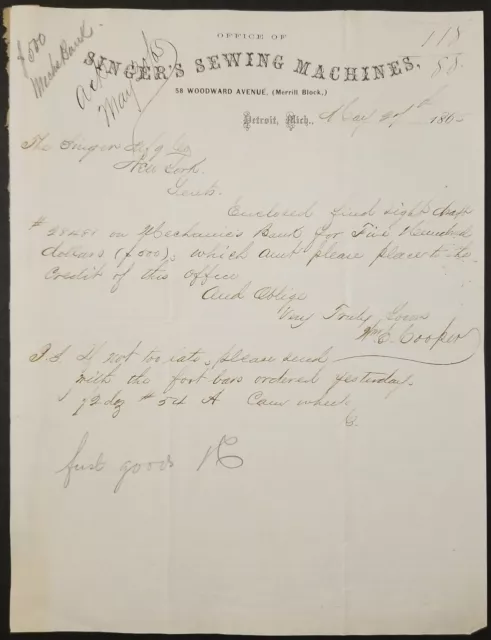 $500
Mechs Bank
Ack
May
65
118
88.
OFFICE OF
SINGER'S SEWING MACHINES,
58 WOODWARD AVENUE, (Merrill Block,)
Detroit, Mich., May 1865
The Singer Mfg Co
New York.
Gents.
Enclosed find sight draft
# 28481 on Mechanics Bank for Five Hundred
dollars ($500), which amt please place to the
Credit of this office
And Oblige
Very Truly Yours
Wm E. Cooper
P.S. If not too late, please send
with the foot bars ordered yesterday.
½ doz # 54 A Cam wheel
C.
goods